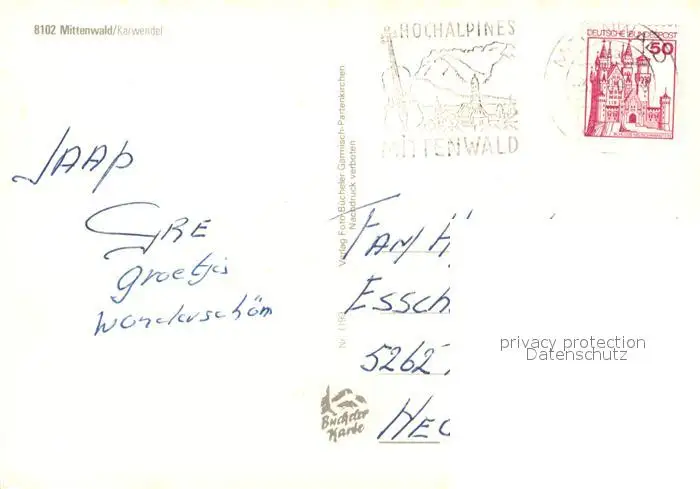 8102 Mittenwald/Karwendel
HOCHALPINES
MITTENWALD
DEUTSCHE BUNDESPOST
50
Verlag Foto Bücheler Garmisch-Partenkirchen
Nachdruck verboten
Nr. 1199
JAAP
GRE
groetjes
wonderschön
FAM H
ESSCH
5262
HEU
privacy protection
Datenschutz
Bücheler
Karte